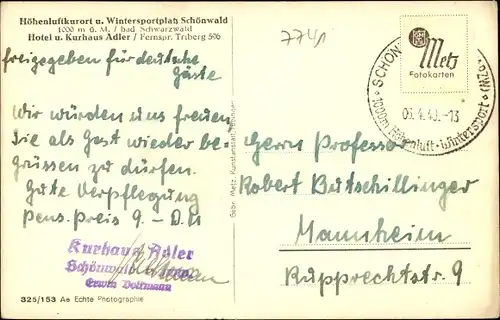 Höhenluftkurort u. Wintersportplatz Schönwald
1000 m ü. M. / bad. Schwarzwald
Hotel u. Kurhaus Adler / Fernspr. Triberg 506
freigegeben für deutsche
Gäste
Wir würden uns freuen,
Sie als Gast wieder be-
grüssen zu dürfen.
Gute Verpflegung
Pens. Preis 9.- D.M
Kurhaus Adler
Schönwald
Erwin Dollmann
325/153 Ae Echte Photographie
Gebr. Metz, Kunstanstalt,
7741
Metz
Fotokarten
SCHÖN
1000m Höhenluft-Wintersport
-13
Herrn Professor
Robert Butschillinger
Mannheim
Rupprechtstr. 9